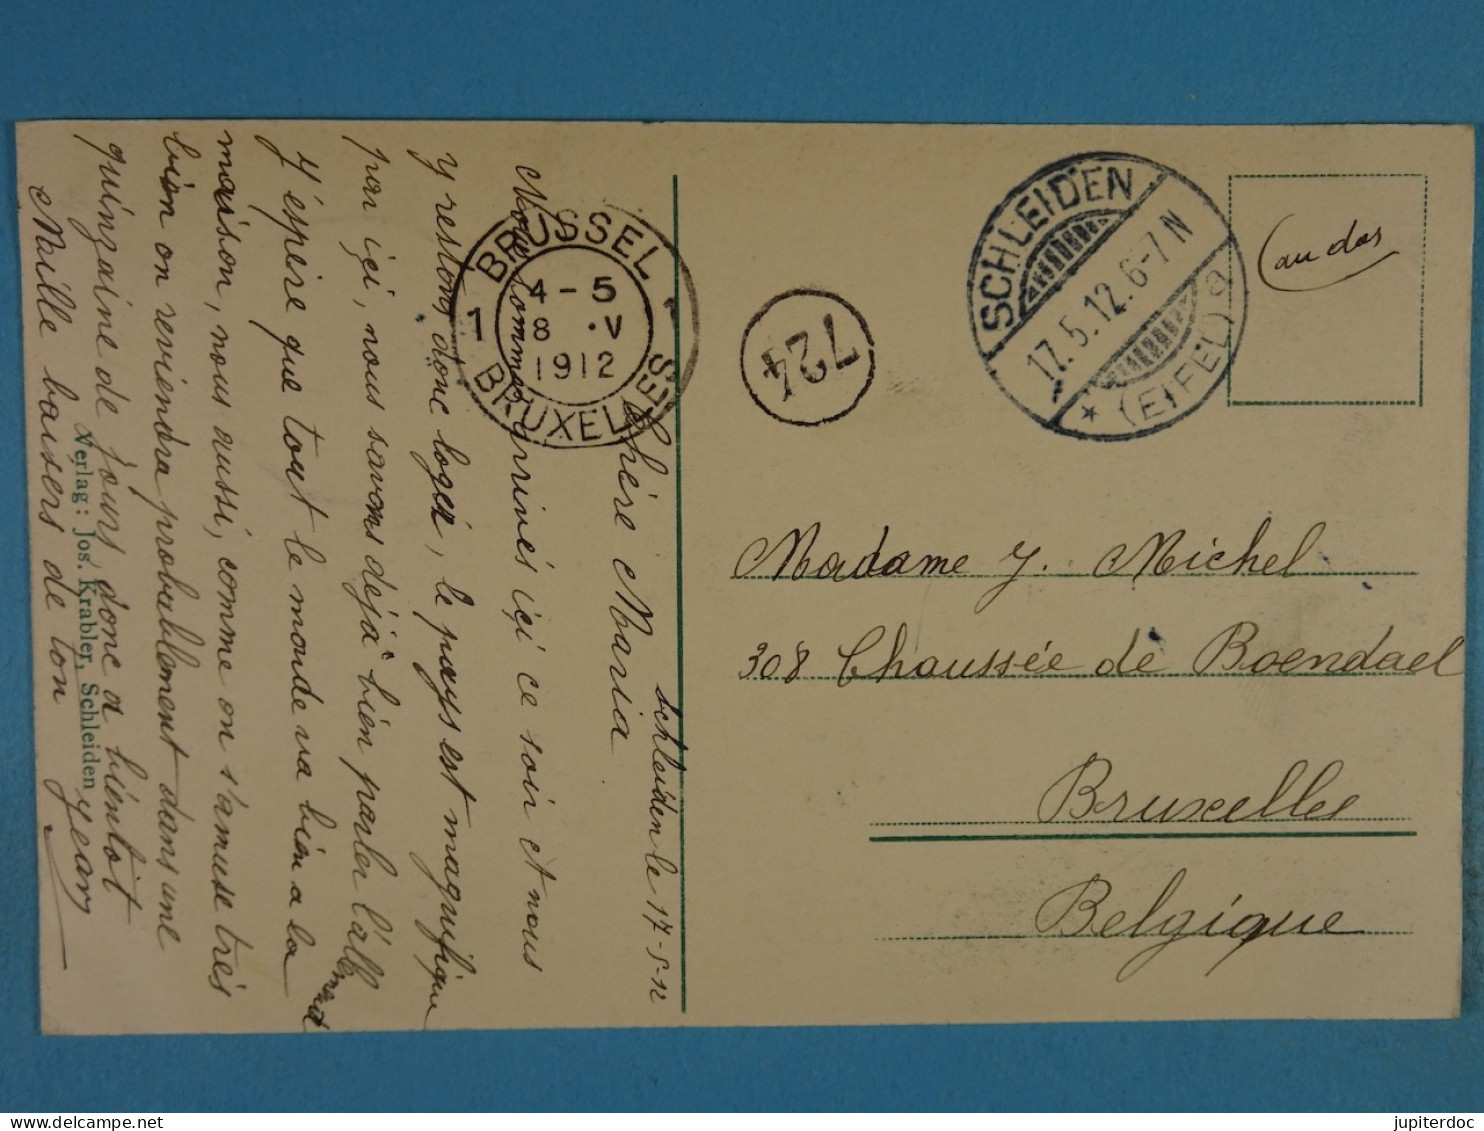 Schleiden le 17-5-12
Chère Maria
Nous sommes arrivés içi ce soir et nous
y restons donc loger, le pays est magnifique
par içi, nous savons déjà bien parler l'allemand
J'éspère que tout le monde va bien a la
maison, nous aussi, comme on s'amuse très
bien on reviendra probablement dans une
quinzaine de jours, donc a bientôt
Maille baisers de ton Jean
Verlag: Jos. Krabler, Schleiden
BRUSSEL
1 4-5 1
8 .V
1912
BRUXELLES
724
SCHLEIDEN
17.5.12.6-7N
* (EIFEL) a
(au dos
Madame J. Michel
308 Chaussée de Boendael
Bruxelles
Belgique
jupiterdoc